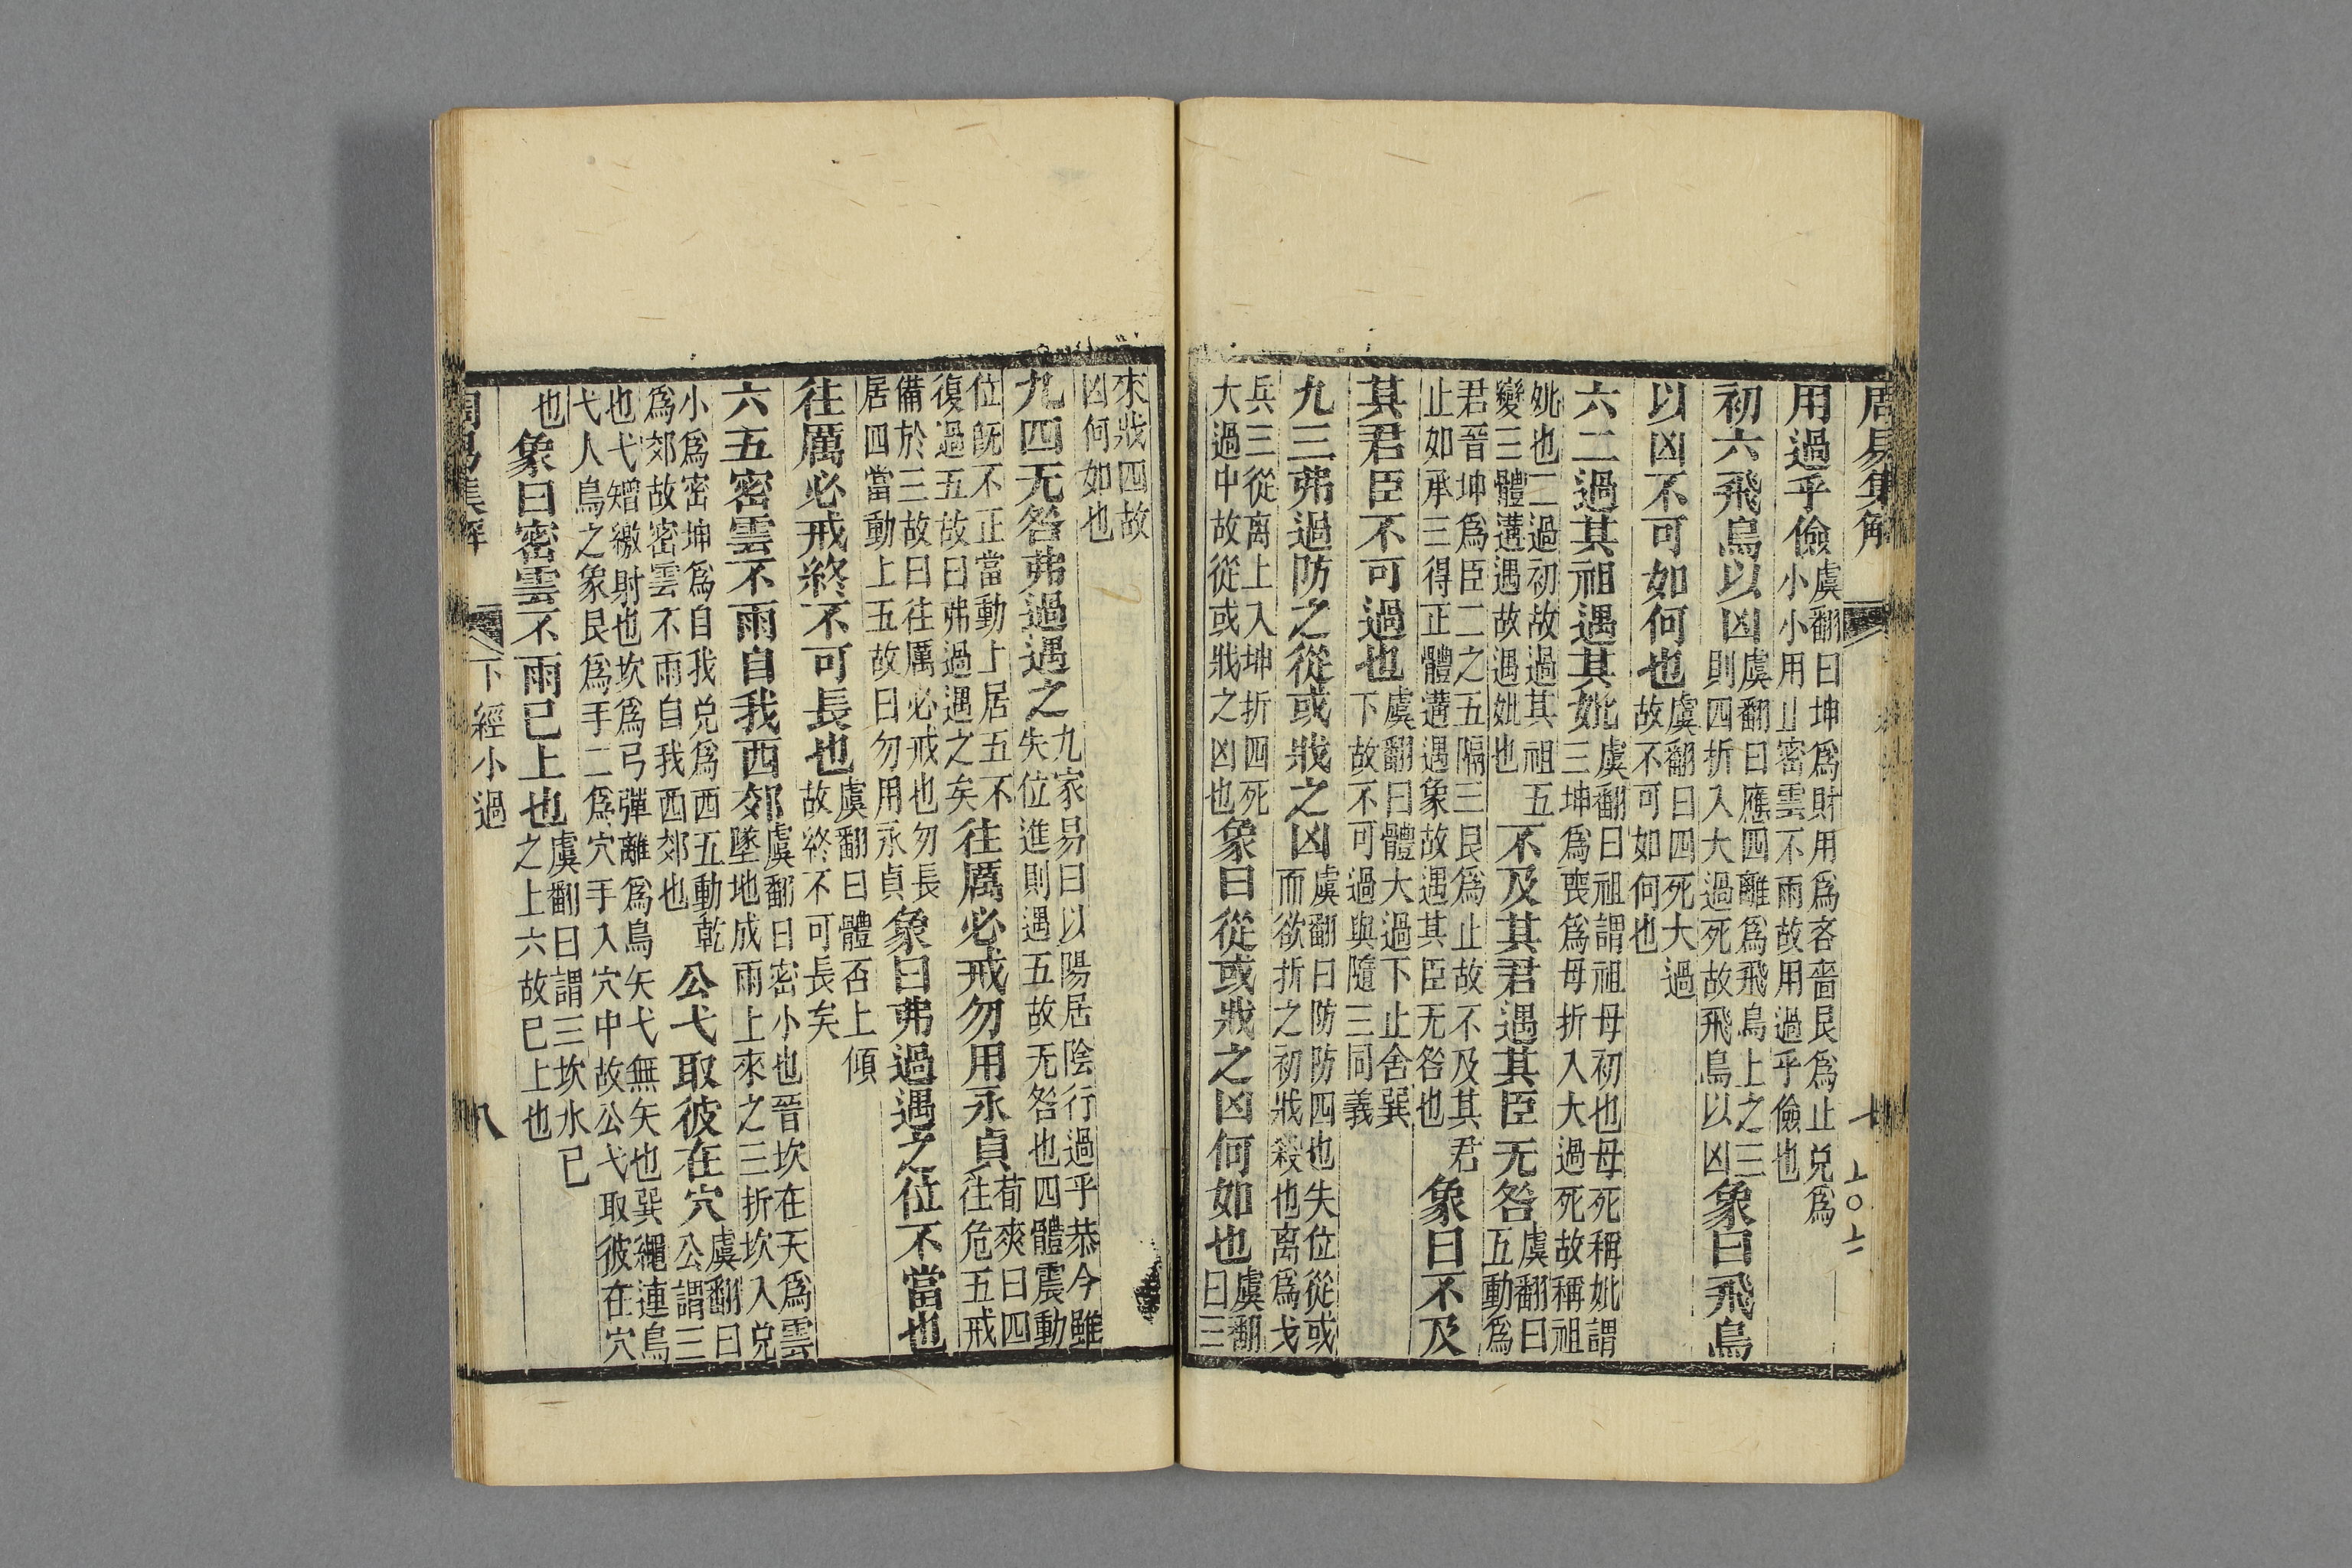 周易集解 七
用過乎儉虞翻曰坤爲財用爲吝嗇艮爲止兌爲小小用止密雲不雨故用過乎儉也
初六飛鳥以凶虞翻曰應四離爲飛鳥上之三則四折入大過死故飛鳥以凶象曰飛鳥
以凶不可如何也虞翻曰四死大過故不可如何也
六二過其祖遇其妣虞翻曰祖謂祖母初也母死稱妣謂三坤爲喪爲母折入大過死故稱祖
妣也二過初故過其祖五變三體遘遇故遇妣也不及其君遇其臣无咎虞翻曰五動爲
君晉坤爲臣二之五隔三艮爲止故不及其君止如承三得正體遘遇象故遇其臣无咎也象曰不及
其君臣不可過也虞翻曰體大過下止舍巽下故不可過與隨三同義
九三弗過防之從或戕之凶虞翻曰防防四也失位從或而欲折之初戕殺也离爲戈
兵三從离上入坤折四死大過中故從或戕之凶也象曰從或戕之凶何如也虞翻曰三
來戕四故凶何如也
九四无咎弗過遇之九家易曰以陽居陰行過乎恭今雖失位進則遇五故无咎也四體震動
位旣不正當動上居五不復過五故曰弗過遇之矣往厲必戒勿用永貞荀爽曰四往危五戒
備於三故曰往厲必戒也勿長居四當動上五故曰勿用永貞象曰弗過遇之位不當也
往厲必戒終不可長也虞翻曰體否上傾故終不可長矣
六五密雲不雨自我西郊虞翻曰密小也晉坎在天爲雲墜地成雨上來之三折坎入兌
小爲密坤爲自我兌爲西五動乾爲郊故密雲不雨自我西郊也公弋取彼在穴虞翻曰公謂三
也弋矰繳射也坎爲弓彈離爲鳥矢弋無矢也巽繩連鳥弋人鳥之象艮爲手二爲穴手入穴中故公弋取彼在穴
也象曰密雲不雨已上也虞翻曰謂三坎水已之上六故已上也
周易集解 下經小過 八